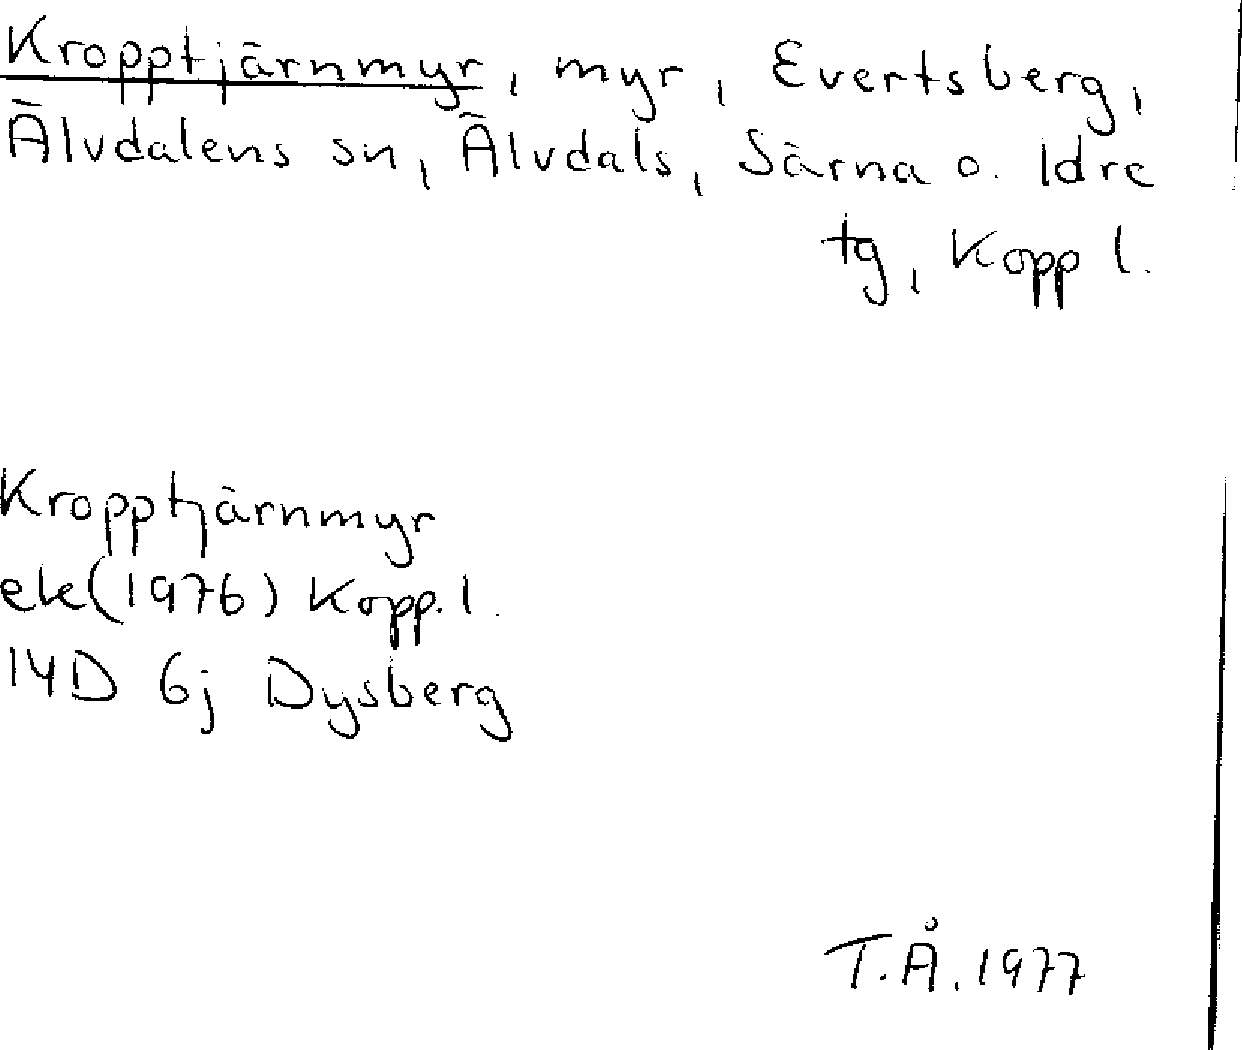 Kropptjärnmyr, myr, Evertsberg,
Älvdalens sn, Älvdals, Särna o. Idre
tg, Kopp l.
Kropptjärnmyr
ek (1976) Kopp. l.
14D 6j Dysberg
T.Å. 1977